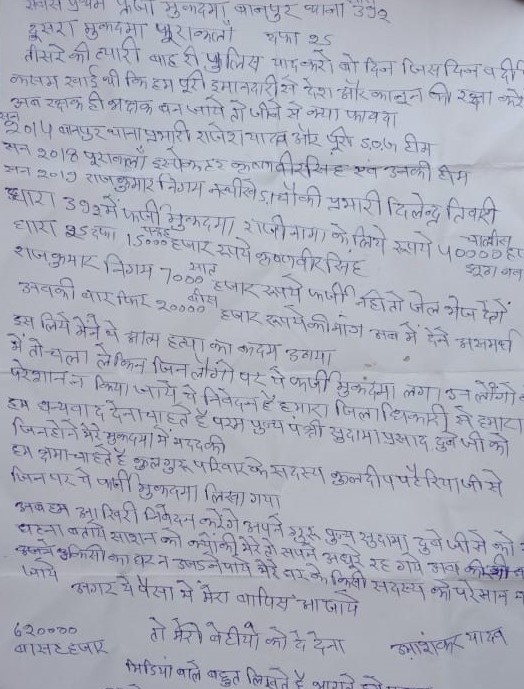 सबसे प्रथम फर्जी मुकदमा बानपुर थाना 392
दूसरा मुकदमा पूराकलां दफा 25
तीसरे की त्यारी वाह री पुलिस याद करो वो दिन जिस दिन वर्दी
कसम खाई थी कि हम पूरी इमानदारी से देश और कानून की रक्षा करे
अब रक्षक ही भक्षक बन जाये तो जीने से क्या फायदा
सन 2014 बानपुर थाना प्रभारी राजेश यादव और पूरी S.O.G टीम
सन 2018 पूराकलाँ इंस्पेक्टर कृष्णवीर सिंह एवं उनकी टीम
सन 2019 राजकुमार निगम चौकी प्रभारी दिलेन्द्र तिवारी
धारा 392 में फर्जी मुकदमा, राजीनामा के लिये रूपये 40000 चालीस
धारा 25 दफा 15000 हजार रूपये कृष्णवीर सिंह
राजकुमार निगम 7000 सात हजार रूपये फर्जी नहीं तो जेल भेज देंगे
अबकी बार फिर 20000 बीस हजार रूपये की मांग अब में देने असमर्थ
इस लिये मैंने ये आत्म हत्या का कदम उठाया
में तो चला लेकिन जिन लोगों पर ये फर्जी मुकदमा लगा उन लोगो
परेशान न किया जाये ये निवेदन है हमारा जिलाधिकारी से हमारा
हम धन्यवाद देना चाहते है परम पुज्य पं श्री सुदामा प्रसाद दुबे जी को
जिन्होने मेरे मुकदमा में मदद की
हम क्षमा चाहते है कुल गुरू परिवार के सदस्य कुलदीप पटैरिया जी से
जिन पर ये फर्जी मुकदमा लिखा गया
अब हम आखिरी निवेदन करेंगे अपने गुरू पुज्य सुदामा दुबे जी से को
घटना बताये साशन को क्योंकी मेरे तो सपने अधूरे रह गये अब
किसी का घर न उजड़ने पाये मेरे घर के किसी सदस्य को परेसान
जाये अगर ये पैसा में मेरा वापिस आ जाये
620000 तो मेरी बेटीयो को दे देना
बासठ हजार उमाशंकर यादव
मिडिया वाले बहुत लिखते है